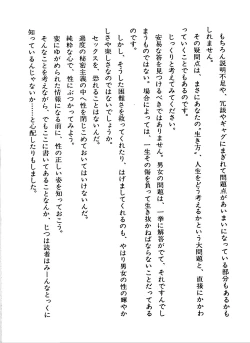 もちろん説明不足や、冗談やギャグにまぎれて問題点があいまいになっている部分もあるかも
しれません。
その疑問点は、まさにあなたの〝生き方〟、人生をどう考えるかという大問題と、直接にかかわ
っていくことでもあるのです。
じっくりと考えてみてください。
安易な答を見つけるべきではありません。男女の問題は、一挙に解答がでて、それですんでし
まうものではない。場合によっては、一生その傷を負って生き抜かねばならないことだってある
のです。
しかし、そうした困難さを救ってくれたり、はげましてくれるのも、やはり男女の性の輝やか
しさや楽しさなのではないでしょうか。
セックスを、恐れることはないんだ。
過度の秘密主義の中へ性を閉じこめておいてはいけないんだ。
純粋な心で、性にぶつかってみよう。
変にゆがめられた情報になる前に、性の正しい姿を知っておこう。
そんなことを考えながら、でもここに書いてあることなんか、じつは読者はみーんなとっくに
知っているんじゃないか…と心配したりもしました。